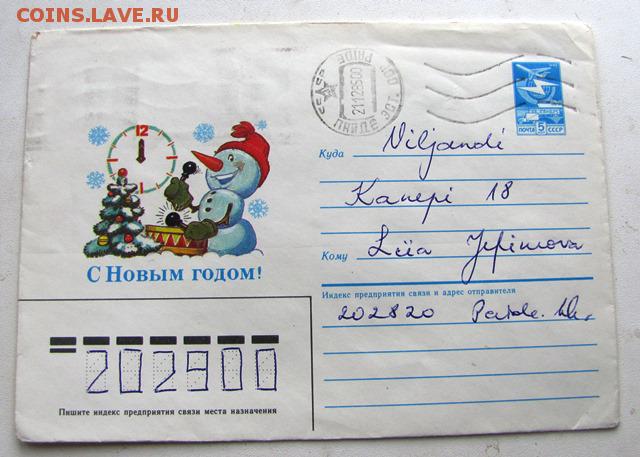 COINS.LAVE.RU
PAIDE
21.12.85 00
ПАЙДЕ ЭСТ.
ПОЧТА 5 СССР
12
Куда Viljandi
Kanepi 18
Кому Liia Jefimova
С Новым годом!
Индекс предприятия связи и адрес отправителя
202820 Paide.
202900
Пишите индекс предприятия связи места назначения